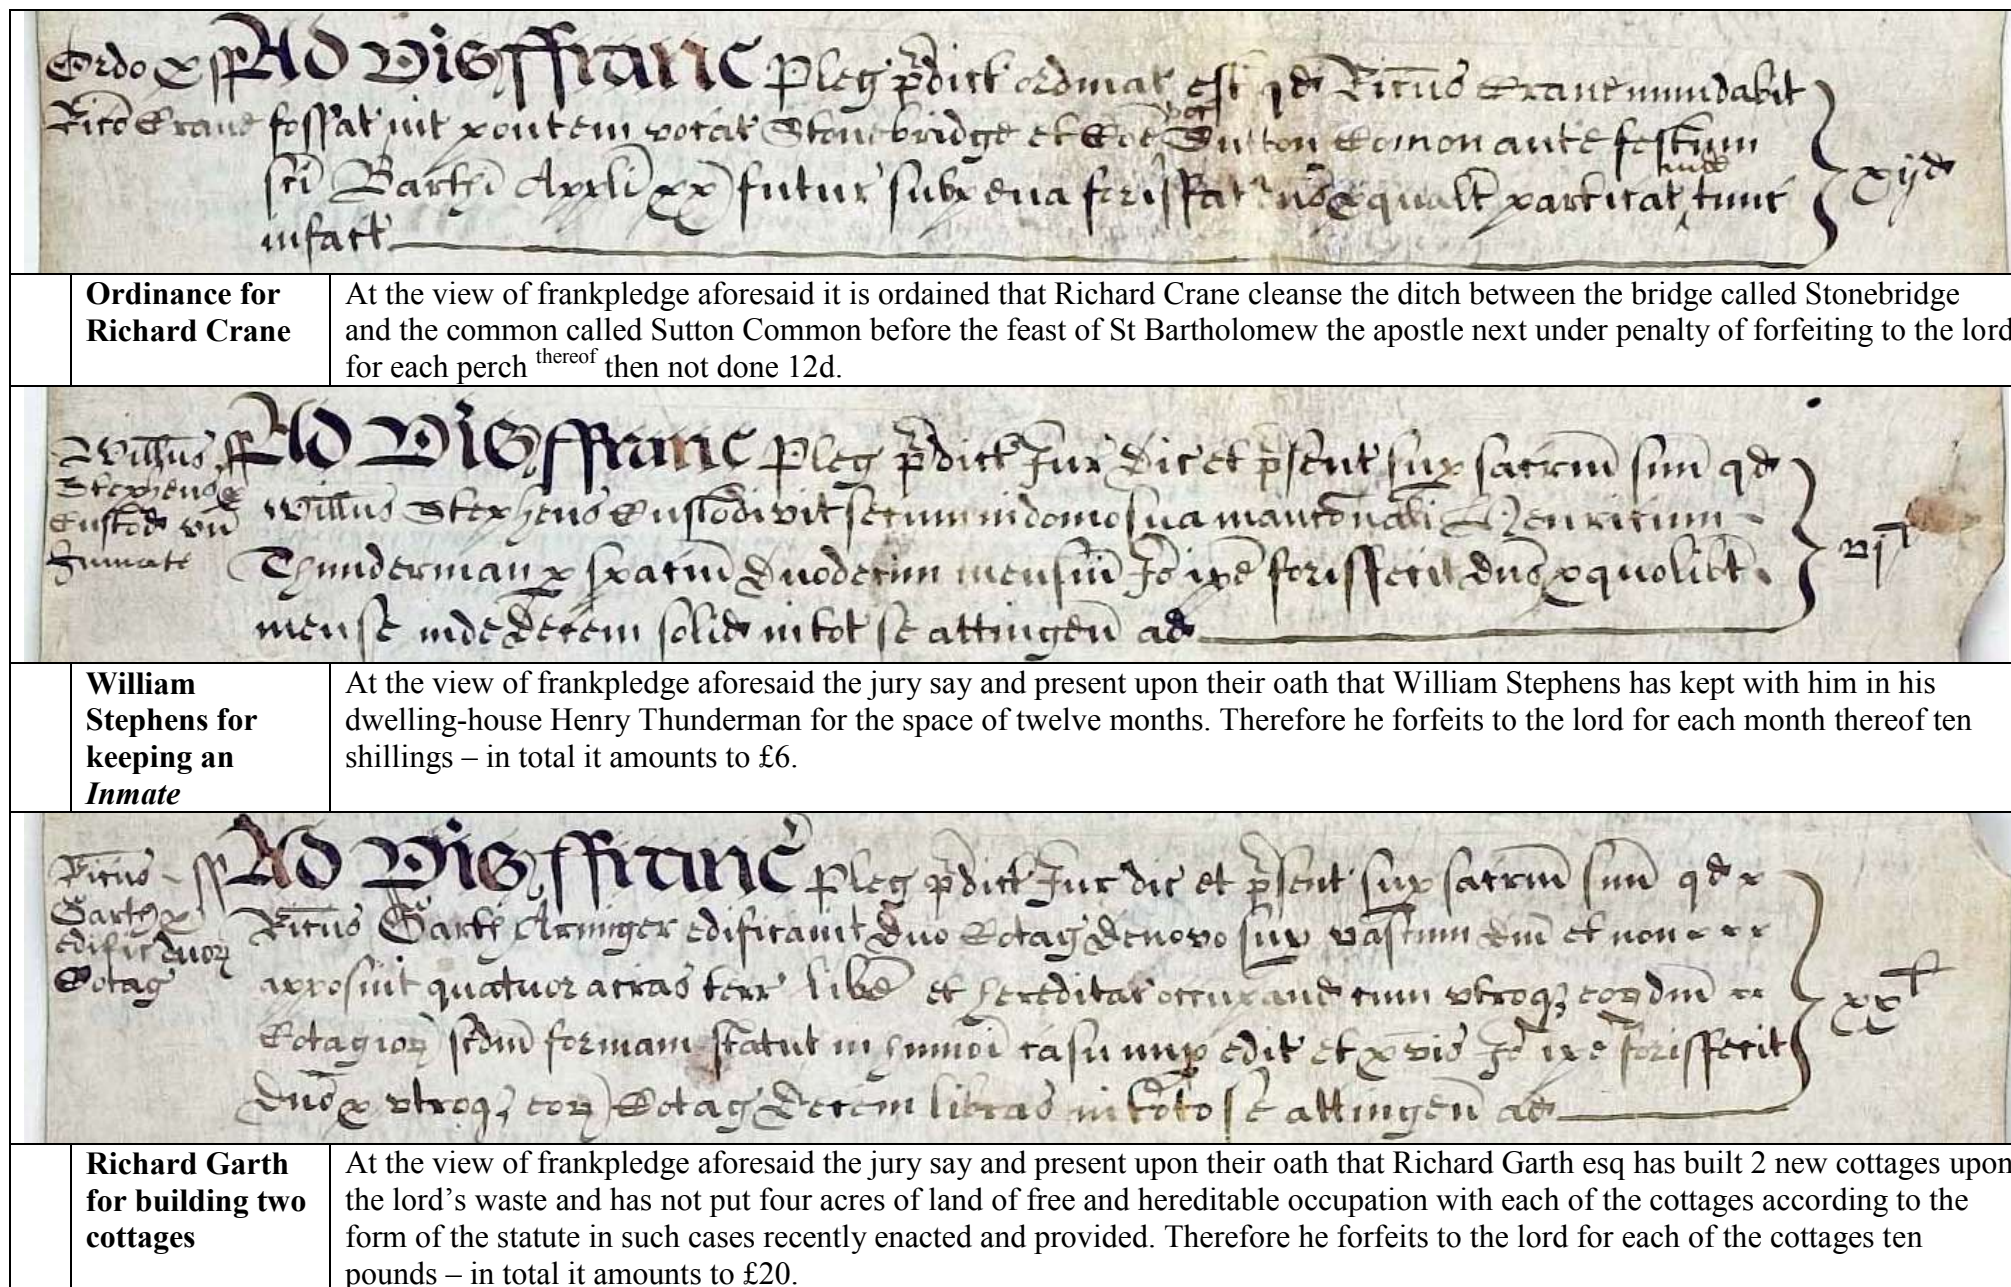 Ordo p ss Ad Vis ffranc Pleg p̄dict ordinat est qd Ricus Crane mundabit
Rico Crane fossat int pontem vocat Stonebridge et Coe voc Sutton Comon ante festum
sci Barthi Appli px futur sub pena forisfact dno p qualt particat inde tunc xijd
infact
Ordinance for
Richard Crane
At the view of frankpledge aforesaid it is ordained that Richard Crane cleanse the ditch between the bridge called Stonebridge
and the common called Sutton Common before the feast of St Bartholomew the apostle next under penalty of forfeiting to the lord
for each perch thereof then not done 12d.
Willus ss Ad Vis ffranc Pleg p̄dict Jur dic et p̄sent sup sacrm suu qd
Stephens p Willus Stephens Custodivit secum in domo sua manconali Henricum
Custod un Thunderman p spacm duodecim mensiu Jo ipe forisfecit dno p quolibt vjl
Inmate mense inde decem solid in tot se attingen ad
William
Stephens for
keeping an
Inmate
At the view of frankpledge aforesaid the jury say and present upon their oath that William Stephens has kept with him in his
dwelling-house Henry Thunderman for the space of twelve months. Therefore he forfeits to the lord for each month thereof ten
shillings – in total it amounts to £6.
Ricus ss Ad Vis ffranc Pleg p̄dict Jur dic et p̄sent sup sacrm suu qd
Garth p Ricus Garth Arminger edificavit duo Cotag de novo sup vastum dni et non
edific duoz apposuit quatuor acras terr libe et hereditar occupand cum utroqz eozdm
Cotag Cotagioz scdm formam statut in hmmoi casu nup edit et pvis Jo ipe forisfecit xxl
dno p utroqz eoz Cotag decem libras in toto se attingen ad
Richard Garth
for building two
cottages
At the view of frankpledge aforesaid the jury say and present upon their oath that Richard Garth esq has built 2 new cottages upon
the lord’s waste and has not put four acres of land of free and hereditable occupation with each of the cottages according to the
form of the statute in such cases recently enacted and provided. Therefore he forfeits to the lord for each of the cottages ten
pounds – in total it amounts to £20.